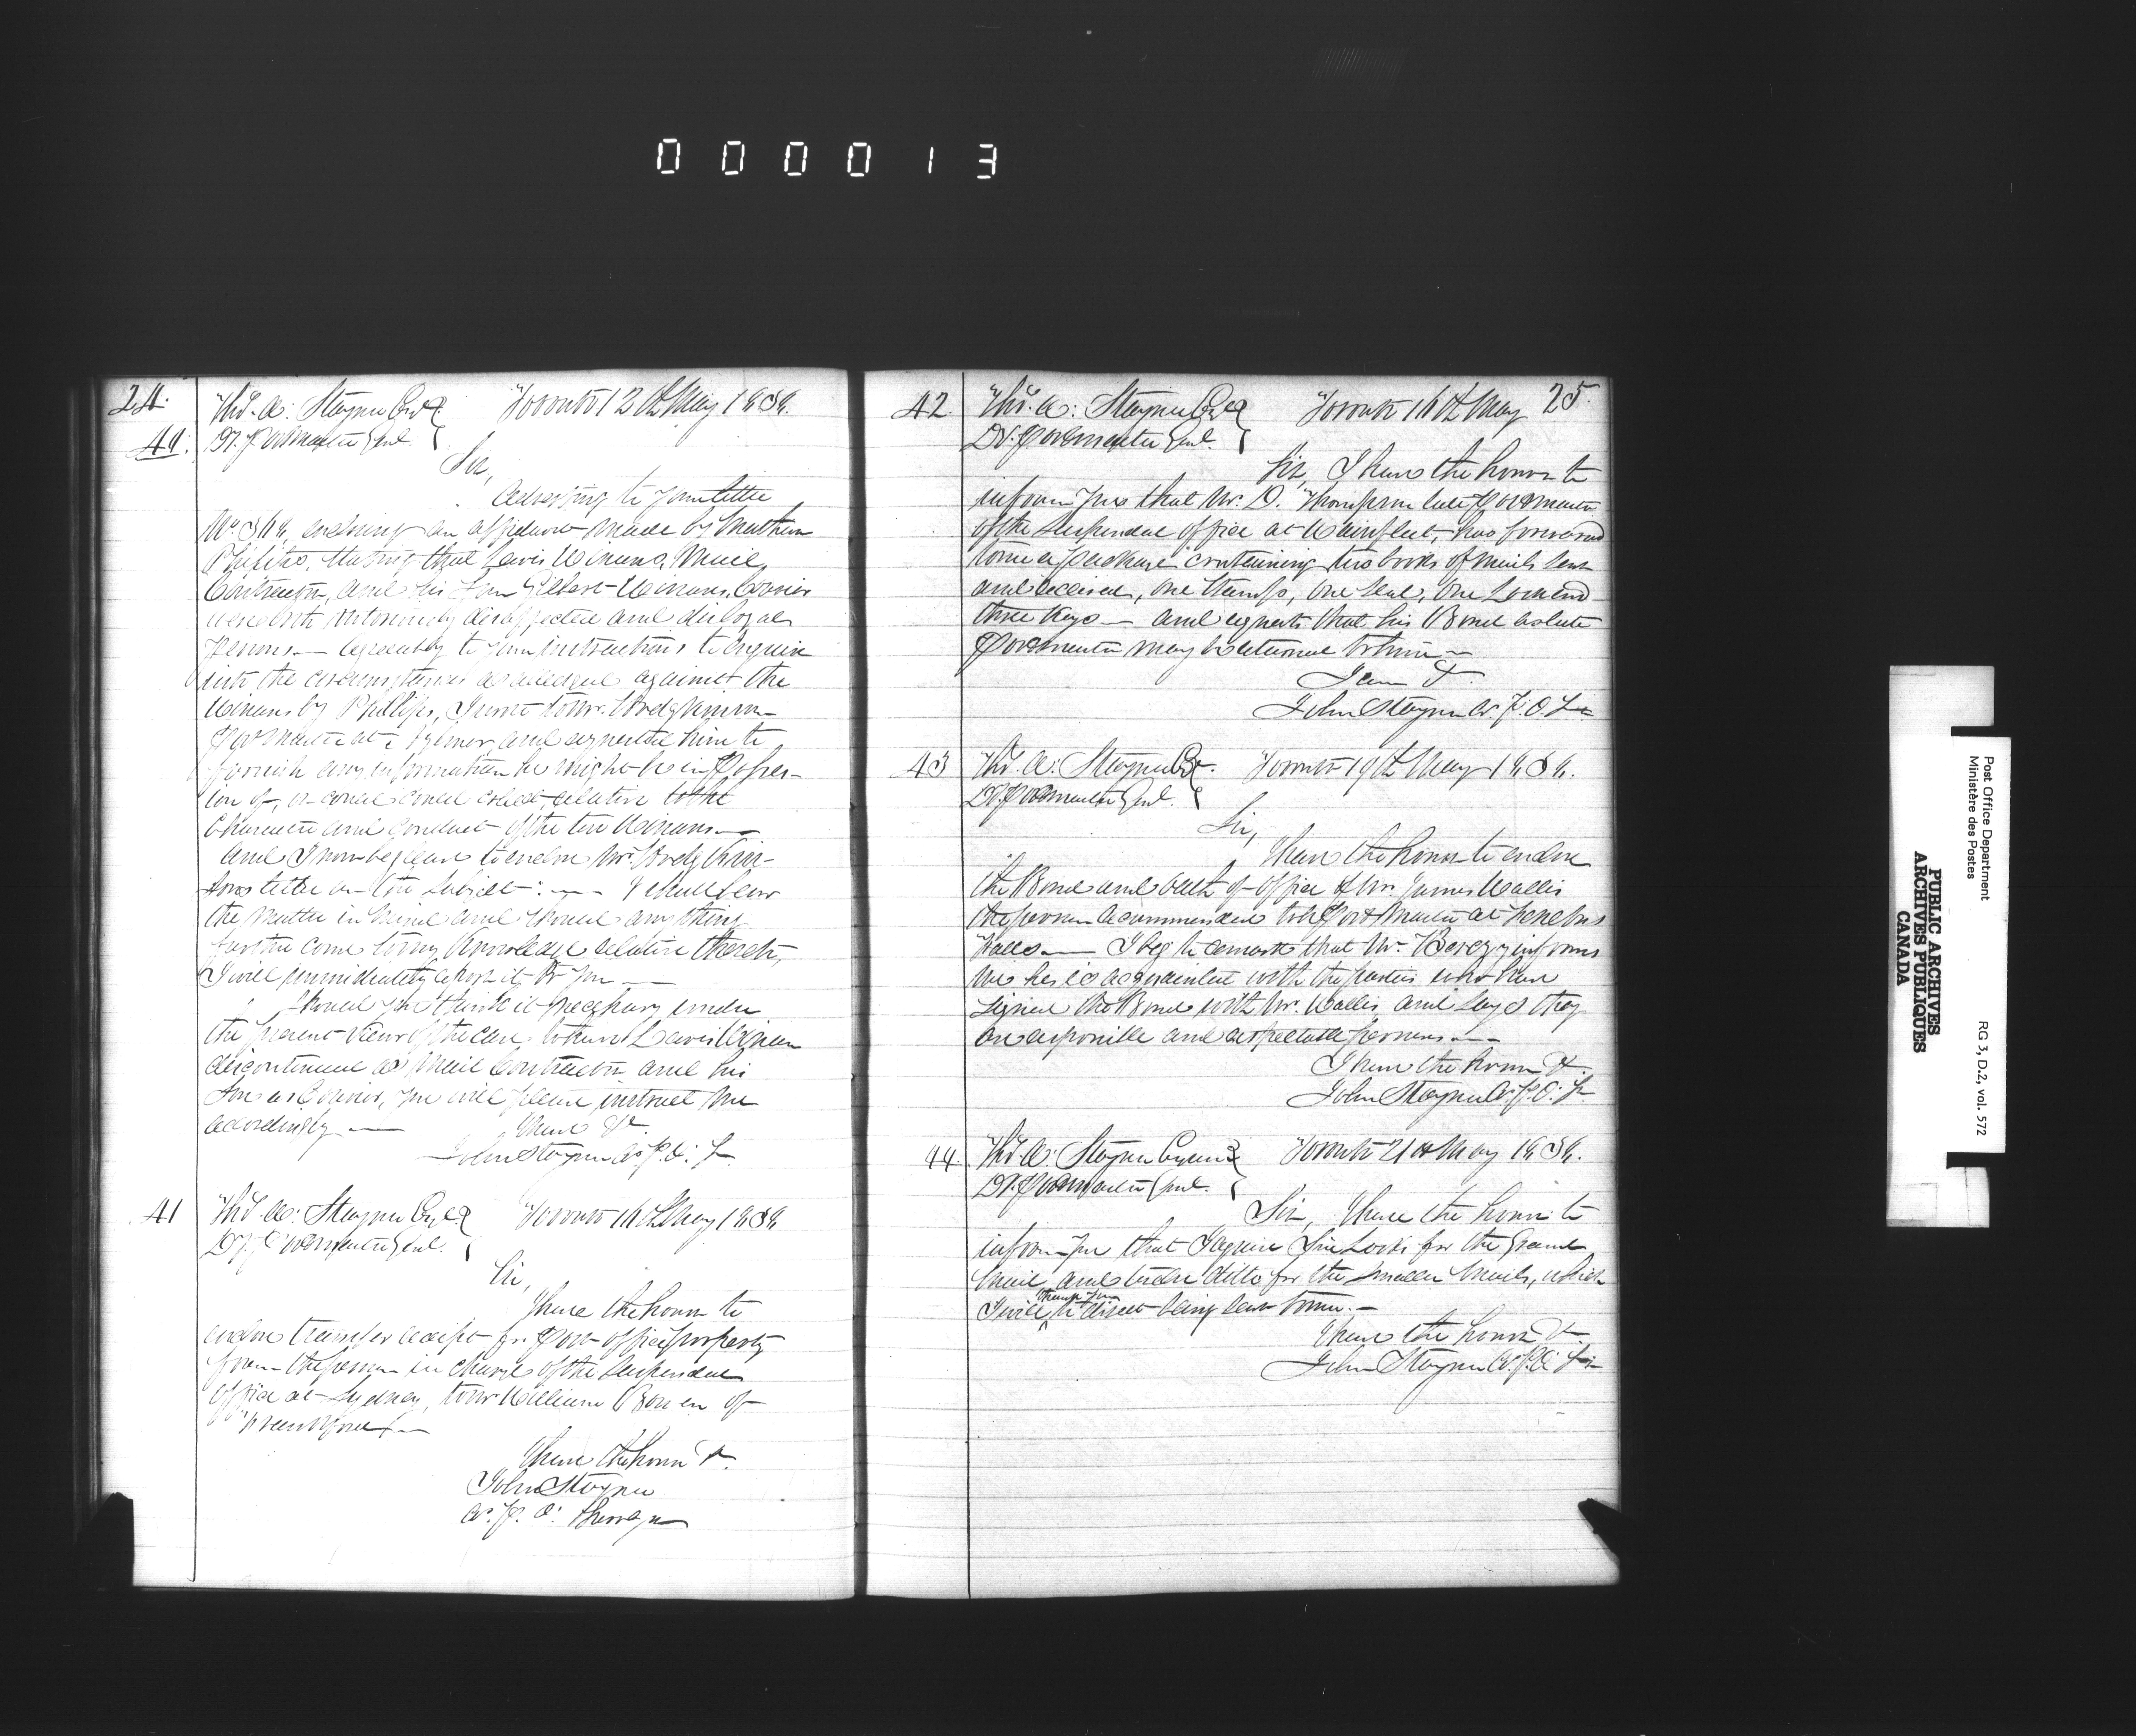 000013
24.
40.
Thos. A: Stayner Esq.
Toronto 12th May 1838.
Dy. Postmaster Genl.
Sir,
Adverting to your letter
No. 318, enclosing an affidavit made by
Phillips, stating that Lewis Winans, Mail
Contractor, and his son Gilbert Winans, Courier
were both notoriously disaffected and disloyal
persons.— Agreeably to your instructions to enquire
into the circumstances as alleged against the
Winans by Phillips, I wrote to Mr. Hodgkinson
Postmaster at Aylmer, and requested him to
furnish any information he might be in posses-
ion of, or could collect, relative to the
Character and Conduct of the two Winans.—
And I now beg leave to enclose Mr. Hodgkin-
sons letter on the subject:— I shall bear
the matter in mind and should any thing
further come to my knowledge relative thereto,
I will immediately report it to you—
Should you think it necessary under
the present view of the case to have Lewis Winan
discontinued as Mail Contractor and his
Son as Courier, you will please instruct me
accordingly—
I have &c.
John Stayner A. P. O. S.
41
Thos. A: Stayner Esq.
Toronto 16th May 1838
Dy. Postmaster Genl.
Sir,
I have the honor to
enclose transfer receipt for Post office property
from the person in charge of the suspended
Office at Sydney, to Mr. William Bowen of
I have the honor &c.
John Stayner
A. P. O. Surveyor
42.
Thos. A: Stayner Esq.
Toronto 16th May
25.
Dy. Postmaster Genl.
Sir, I have the honor to
inform you that Mr. D. Thompson late Postmaster
of the suspended office at Wainfleet, has forwarded
to me a package containing two books of mails sent
and received, one stamp, one seal, one Lock and
three keys— and requests that his Bond as late
Postmaster may be returned to him—
I am &c.
John Stayner A. P. O. S.
43
Thos. A: Stayner Esq.
Toronto 19th May 1838.
Dy. Postmaster Genl.
Sir,
I have the honor to enclose
the Bond and Oath of office of Mr. James Wallis
the person recommended to be Post Master at Fenelons
Falls.— I beg to remark that Mr. Berczy informs
me he is acquainted with the parties who have
signed the Bond with Mr. Wallis, and says they
are responsible and respectable persons.—
I have the honor &c.
John Stayner A. P. O. S.
44.
Thos. A: Stayner Esquire
Toronto 21st May 1838.
Dy. Postmaster Genl.
Sir, I have the honor to
inform you that I require Locks for the Grand
Mail, and ditto for the smaller Mails, which
I will thank you to direct being sent to me.—
I have the honor &c.
John Stayner A. P. O. S.
Post Office Department
Ministère des Postes
RG 3, D.2, vol. 572
PUBLIC ARCHIVES
ARCHIVES PUBLIQUES
CANADA